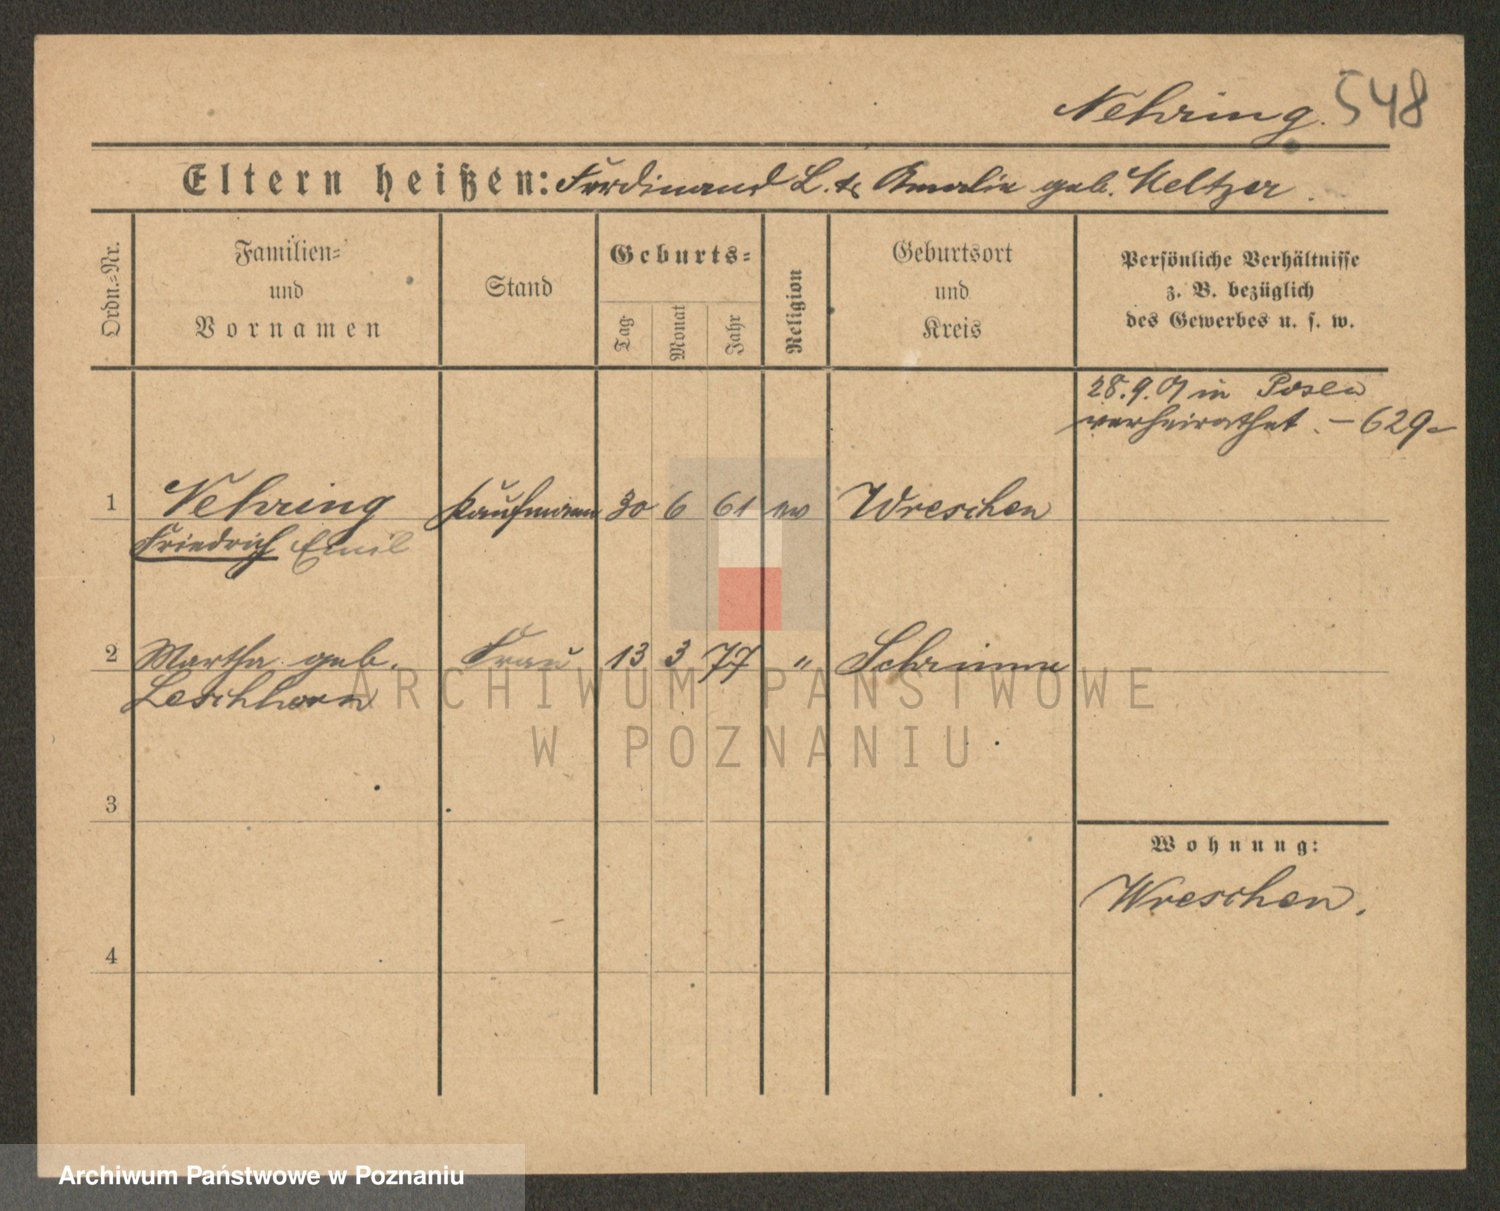 Nehring. 548
Eltern heißen: Ferdinand L. & Amalie geb. Meltzer.
Ordn.=Nr.
Familien=
und
Vornamen
Stand
Geburts=
Tag
Monat
Jahr
Religion
Geburtsort
und
Kreis
Persönliche Verhältnisse
z. B. bezüglich
des Gewerbes u. s. w.
28.9.01 in Posen
verheirathet. – 629 –
1 Nehring Kaufmann 30 6 61 ev Wreschen
Friedrich Emil
2 Martha geb. Frau 13 3 77 " Schrimm
Leschhorn
ARCHIWUM PAŃSTWOWE
W POZNANIU
3
Wohnung:
Wreschen.
4
Archiwum Państwowe w Poznaniu